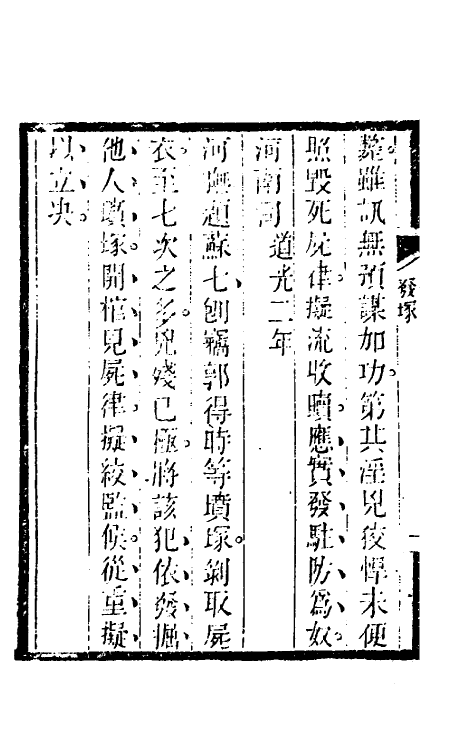 斃雖訊無預謀加功第其淫兇狡悍未便
照毀死屍律擬流收贖應實發駐防爲奴
河南司　道光二年
河撫題蘇七刨竊郭得時等墳塚剝取屍
衣至七次之多兇殘已極將該犯依發掘
他人墳塚開棺見屍律擬絞監候從重擬
以立决
發塚